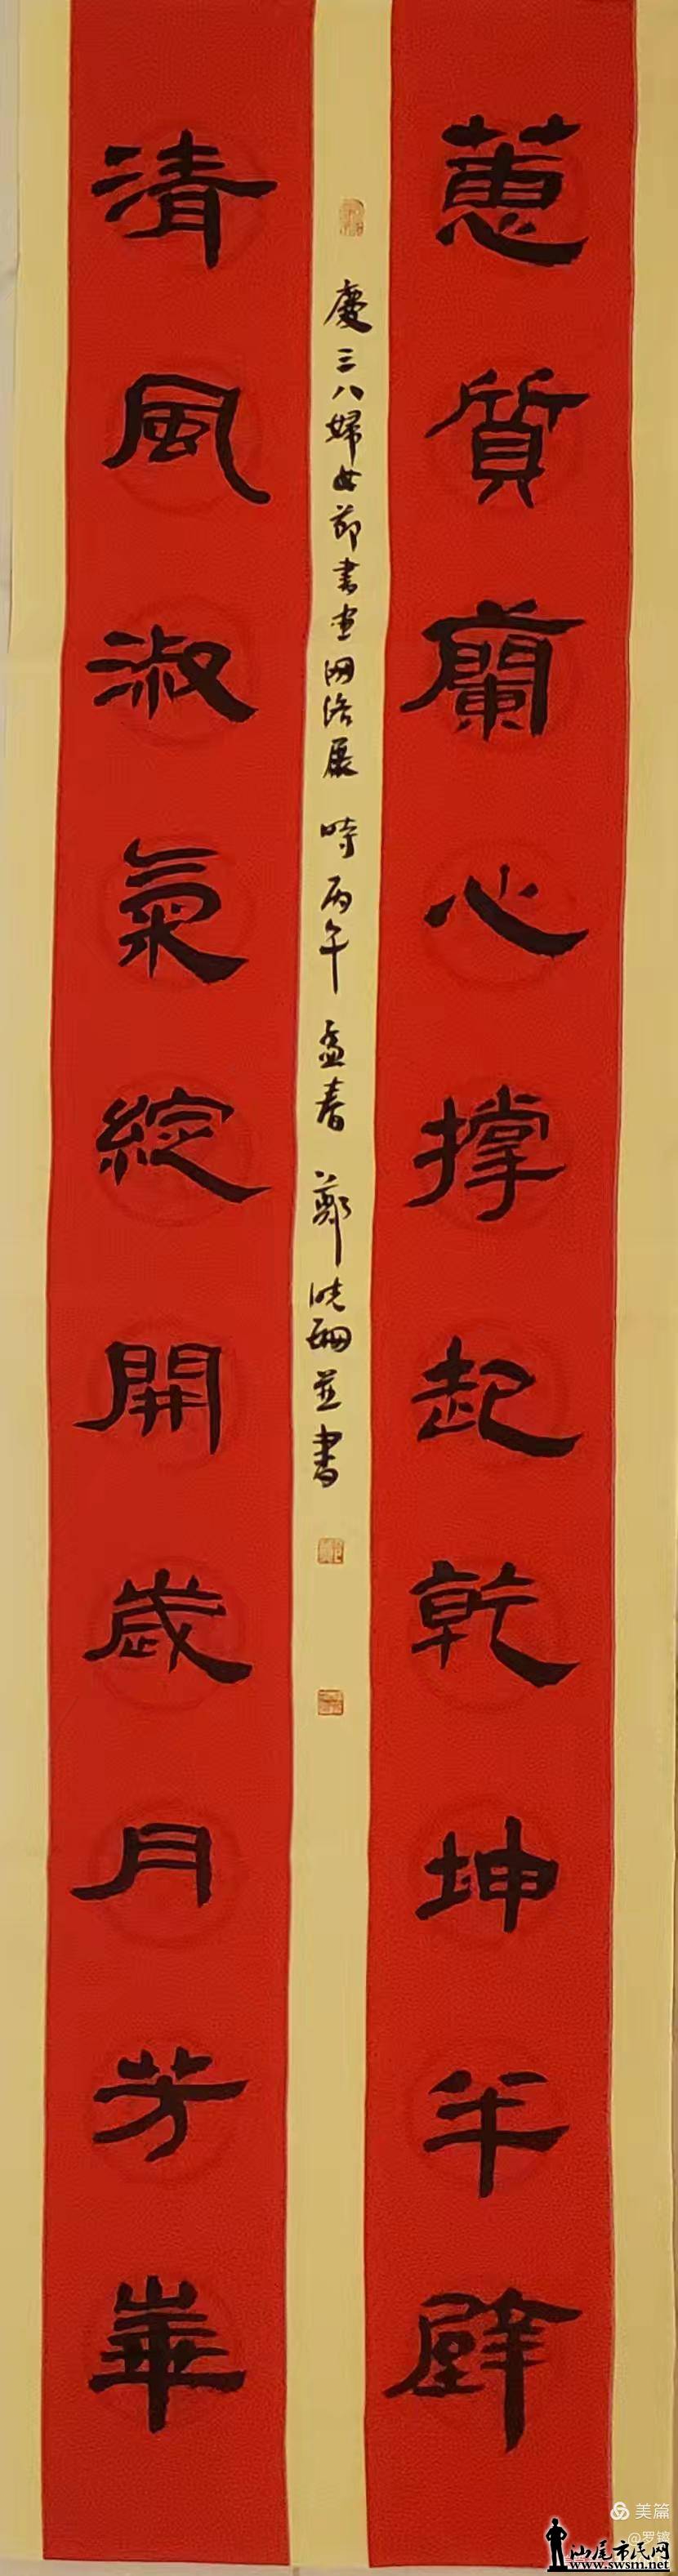 蕙質蘭心撐起乾坤半壁
清風淑氣綻開歲月芳華
慶三八婦女節書画网络展 時丙午孟春 鄭 並書
美篇
@罗锦
汕尾市民网
www.swsm.net